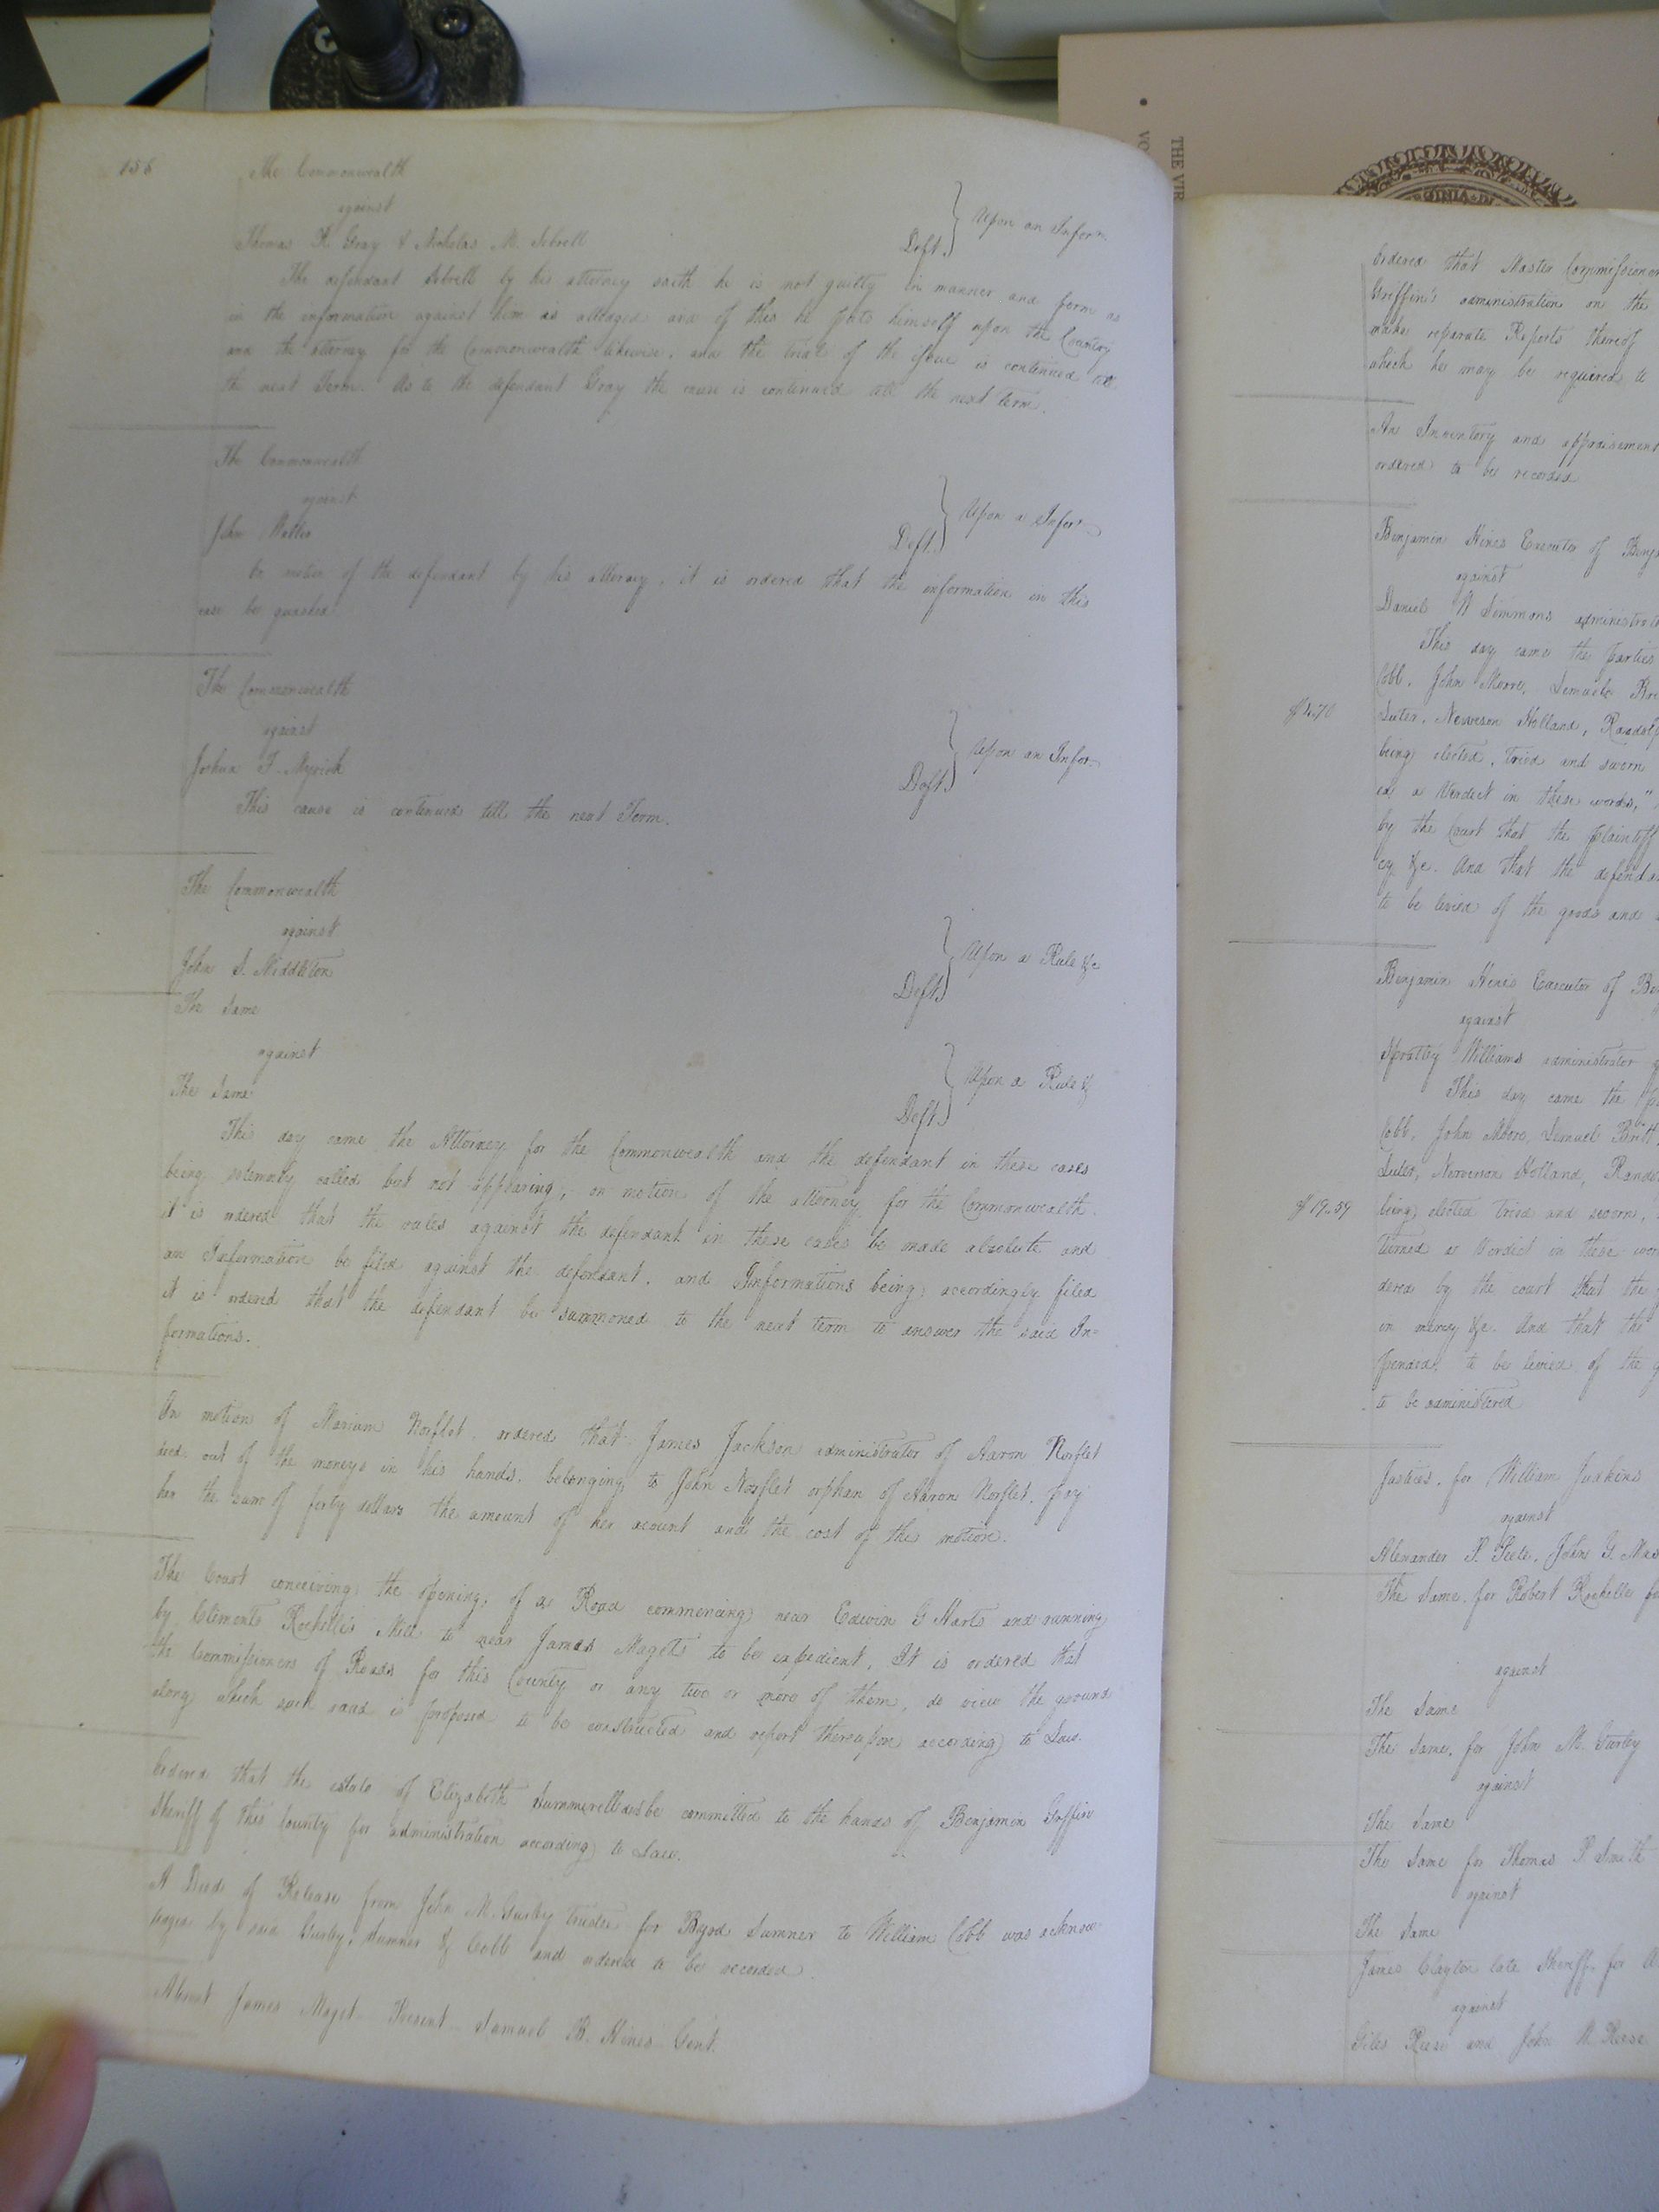 156
The Commonwealth
against
Thomas R. Gray & Nicholas M. Sebrell Deft. } Upon an Inform.
The defendant Sebrell by his attorney saith he is not guilty in manner and form as
in the information against him is alleaged and of this he puts himself upon the Country
and the attorney for the Commonwealth likewise, and the trial of the issue is continued till
the next Term. As to the defendant Gray the cause is continued till the next term.
The Commonwealth
against
John Deft. } Upon a Infor:
On motion of the defendant by his attorney, it is ordered that the information in this
case be quashed
The Commonwealth
against
Joshua F. Myrick Deft. } Upon an Infor:
This cause is continued till the next Term.
The Commonwealth
against
John S. Middleton Deft. } Upon a Rule &c
The Same
against
The Same Deft. } Upon a Rule &
This day came the Attorney for the Commonwealth and the defendant in these cases
being solemnly called but not appearing, on motion of the attorney for the Commonwealth
it is ordered that the rules against the defendant in these cases be made absolute and
an Information be filed against the defendant, and Informations being accordingly filed
it is ordered that the defendant be summoned to the next term to answer the said In=
formations.
On motion of Norflet, ordered that James Jackson administrator of Aaron Norflet
decd. out of the moneys in his hands, belonging to John Norflet orphan of Aaron Norflet, pay
her the sum of forty dollars the amount of her acount and the cost of this motion.
The Court conceiving the opening, of a Road commencing near Edwin G Harts and running
by Clements Rochelle's Mill to near James Magets to be expedient, It is ordered that
the Commissioners of Roads for this County or any two or more of them, do view the ground
along which said road is proposed to be constructed and report thereupon according to Law.
Ordered that the estate of Elizabeth Summerell decd be committed to the hands of Benjamin Griffin
Sheriff of this County for administration according to Law.
A Deed of Release from John M. Gurley trustee for Sumner to William Cobb was acknow
ledged by said Gurley, Sumner & Cobb and ordered to be recorded.
Absent James Maget Present Samuel B. Hines Gent.
Ordered that Master Commissioner
Griffin's administration on the
make separate Reports thereof
which he may be required to
An Inventory and appraisement
ordered to be recorded
Benjamin Hines Executor of Benj
against
Daniel W Simmons administrat
This day came the parties
Cobb, John Moore, Samuel Br
Suter, Newsom Holland, Randolp
being elected, tried and sworn
ed a Verdict in these words, "
by the Court that the plaintiff
cy &c. And that the defenda
to be levied of the goods and
Benjamin Hines Executor of Be
against
Spratley Williams administrator
This day came the p
Cobb, John Moore, Samuel Britt
Suter, Newsom Holland, Rando
$19.59 being elected tried and sworn,
turned a Verdict in these wor
dered by the court that the
in mercy &c. And that the
pended, to be levied of the g
to be administered
Justices, for William Judkins
against
Alexander P. Peete, John G. Mas
The Same, for Robert Rochelle
against
The Same
The Same, for John M. Gurley
against
The Same
The Same for Thomas P Smith
against
The Same
James Clayton late Sheriff for
against
Giles Reese and John Reese
THE VIR
VO